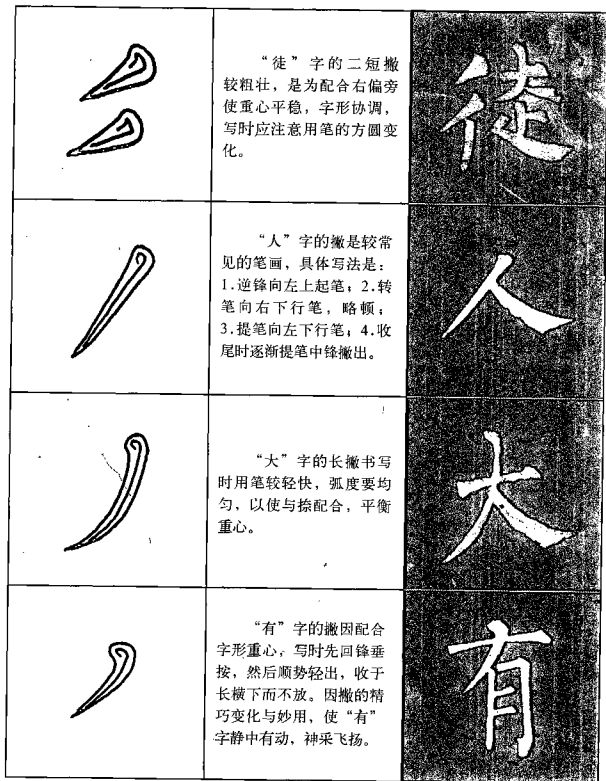 “徒”字的二短撇
较粗壮，是为配合右偏旁
使重心平稳，字形协调，
写时应注意用笔的方圆变
化。
徒
“人”字的撇是较常
见的笔画，具体写法是：
1.逆锋向左上起笔；2.转
笔向右下行笔，略顿；
3.提笔向左下行笔；4.收
尾时逐渐提笔中锋撇出。
人
“大”字的长撇书写
时用笔较轻快，弧度要均
匀，以使与捺配合，平衡
重心。
大
“有”字的撇因配合
字形重心，写时先回锋垂
按，然后顺势轻出，收于
长横下而不放。因撇的精
巧变化与妙用，使“有”
字静中有动，神采飞扬。
有